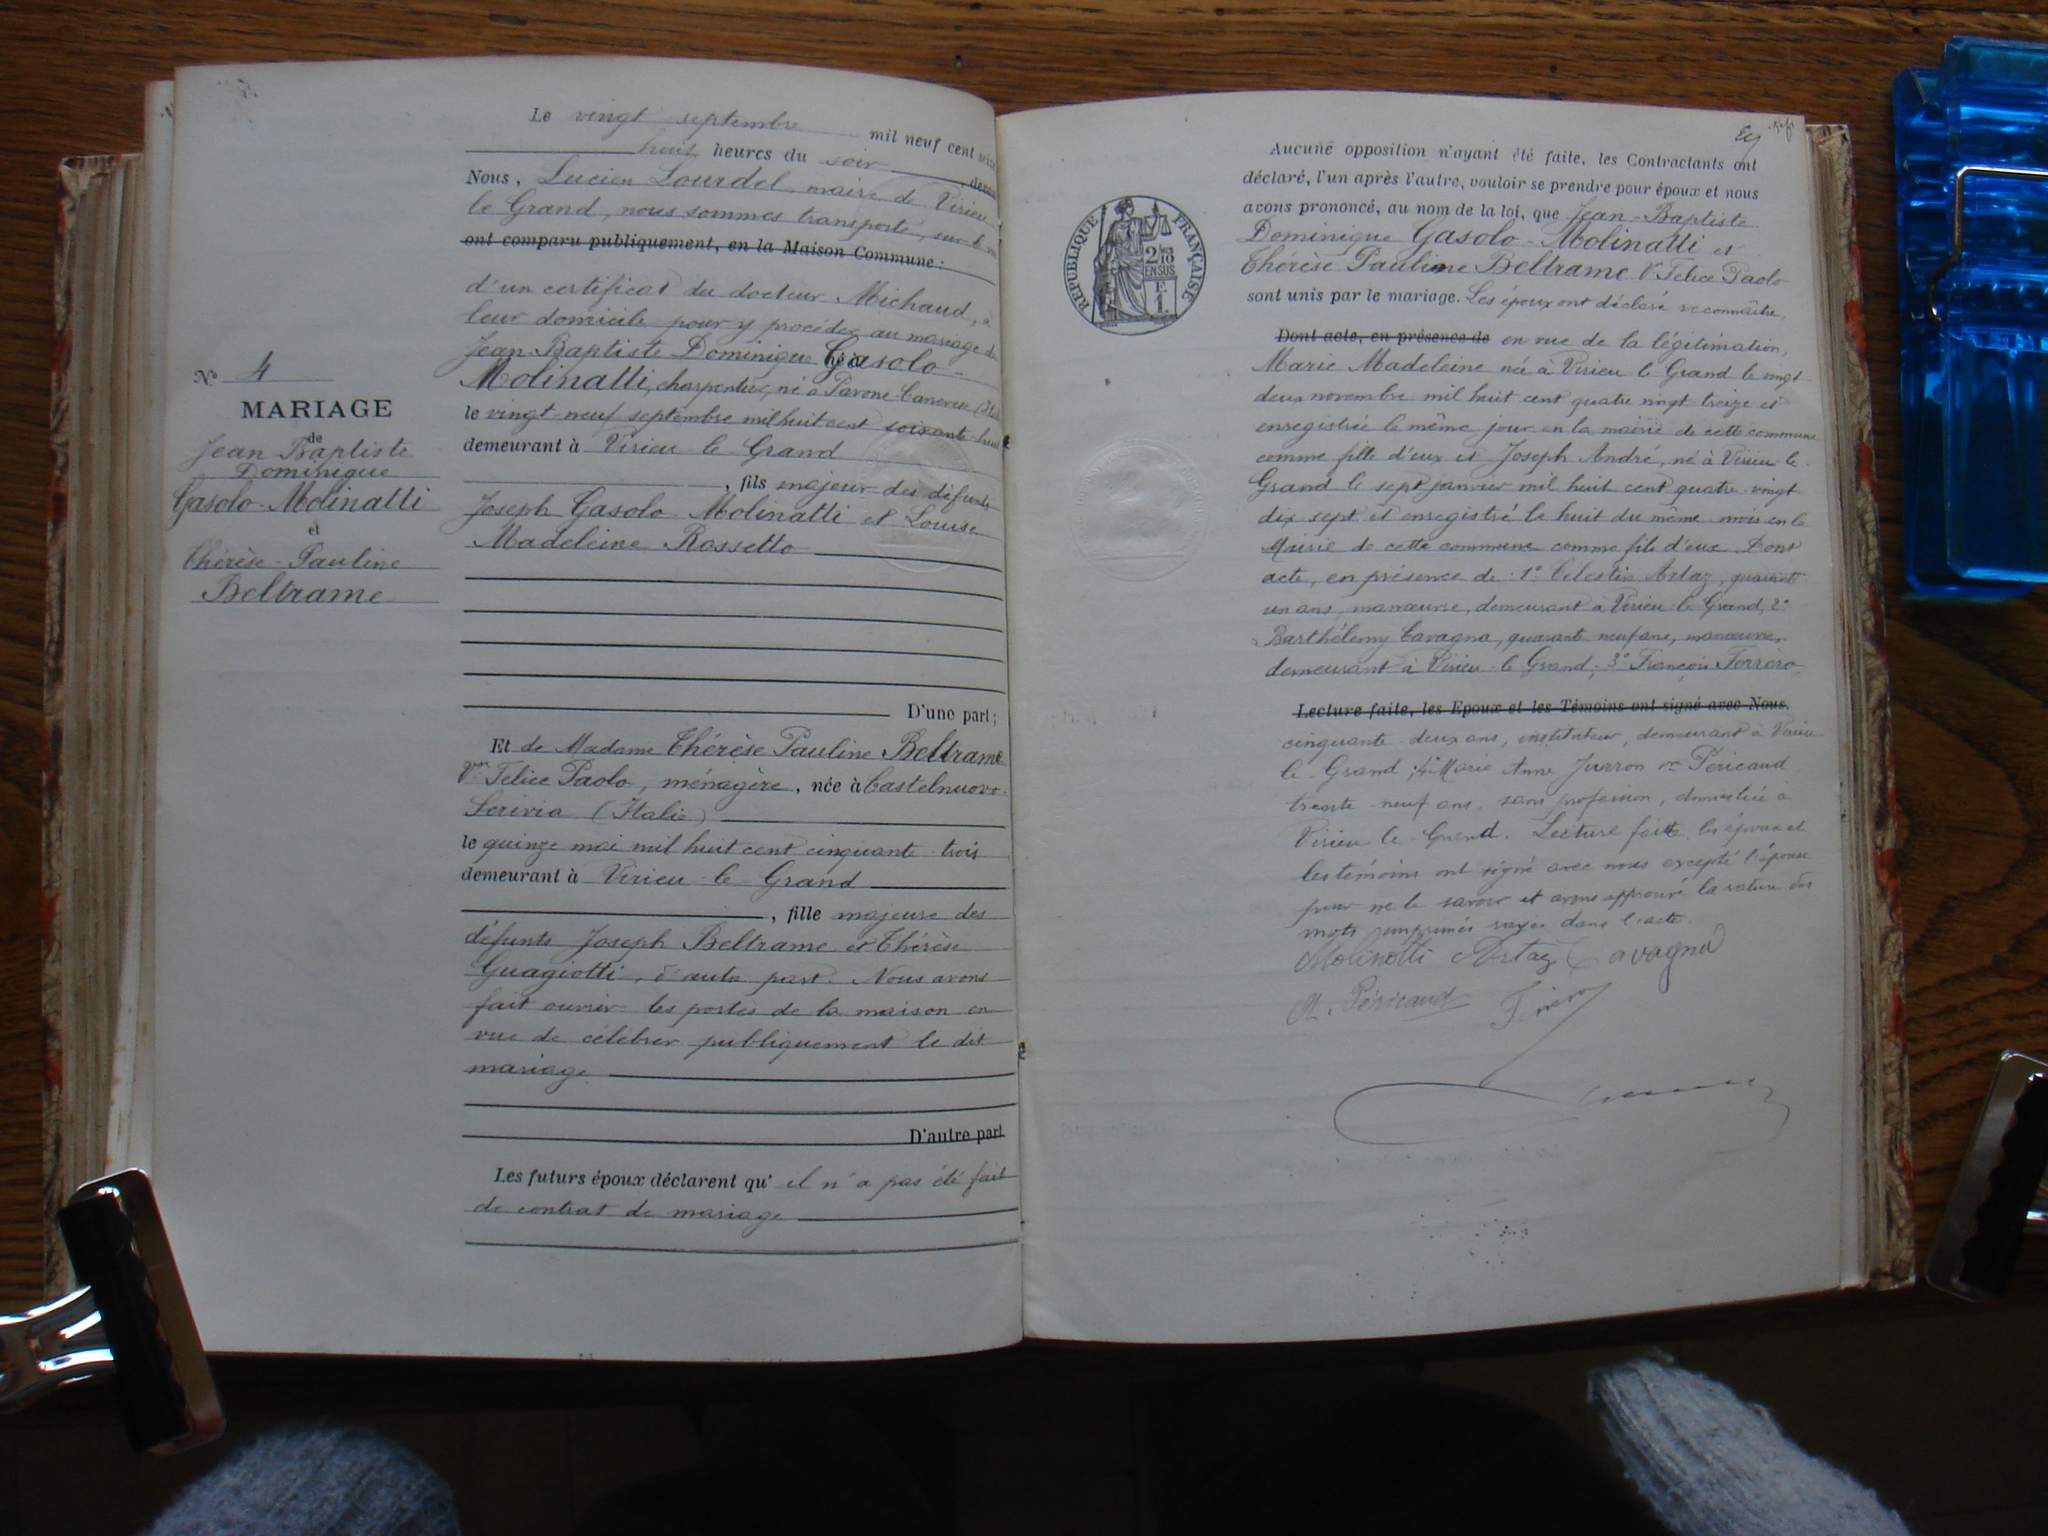 Le vingt septembre mil neuf cent seize
huit heures du soir, devant
Nous, Lucien Lourdel, maire de Virieu
le Grand, nous sommes transporté, sur le vu
ont comparu publiquement, en la Maison Commune :
d'un certificat du docteur Michaud, à
leur domicile pour y procéder au mariage de
Jean-Baptiste Dominique Gasolo-
Molinatti, charpentier, né à Pavone Canavese
le vingt-neuf septembre mil huit cent soixante-huit
demeurant à Virieu le Grand
, fils majeur des défunts
Joseph Gasolo Molinatti et Louise
Madeleine Rossetto
N° 4
MARIAGE
de
Jean Baptiste
Dominique
Gasolo-Molinatti
et
Thérèse-Pauline
Beltrame
D'une part;
Et de Madame Thérèse Pauline Beltrame
Felice Paolo, ménagère, née à Castelnuovo-
Scrivia (Italie)
le quinze mai mil huit cent cinquante-trois
demeurant à Virieu le Grand
, fille majeure des
défunts Joseph Beltrame et Thérèse
Guagiotti, d'autre part. Nous avons
fait ouvrir les portes de la maison en
vue de célébrer publiquement le dit
mariage
D'autre part
Les futurs époux déclarent qu'il n'a pas été fait
de contrat de mariage
Aucune opposition n'ayant été faite, les Contractants ont
déclaré, l'un après l'autre, vouloir se prendre pour époux et nous
avons prononcé, au nom de la loi, que Jean-Baptiste
Dominique Gasolo-Molinatti et
Thérèse Pauline Beltrame Vve Felice Paolo
sont unis par le mariage. Les époux ont déclaré reconnaître,
Dont acte, en présence de en vue de la légitimation,
Marie Madeleine née à Virieu le Grand le vingt-
deux novembre mil huit cent quatre vingt treize et
enregistrée le même jour en la mairie de cette commune
comme fille d'eux et Joseph André, né à Virieu le
Grand le sept janvier mil huit cent quatre vingt
dix sept et enregistré le huit du même mois en la
Mairie de cette commune comme fils d'eux. Dont
acte, en présence de : 1° Célestin Artaz, quarante
un ans, manœuvre, demeurant à Virieu le Grand, 2°
Barthélemy Cavagna, quarante-neuf ans, manœuvre,
demeurant à Virieu le Grand; 3° François Forrero
Lecture faite, les Epoux et les Témoins ont signé avec Nous.
cinquante-deux ans, instituteur, demeurant à Virieu
le Grand; 4° Marie Anne Jurron Péricaud
trente-neuf ans, sans profession, domiciliée à
Virieu le Grand. Lecture faite les époux et
les témoins ont signé avec nous excepté l'épouse
pour ne le savoir et avons approuvé la rature des
mots imprimés rayés dans l'acte.
Molinatti Artaz Cavagna
M. Péricaud
RÉPUBLIQUE FRANÇAISE
2/10
EN SUS
F.
1.